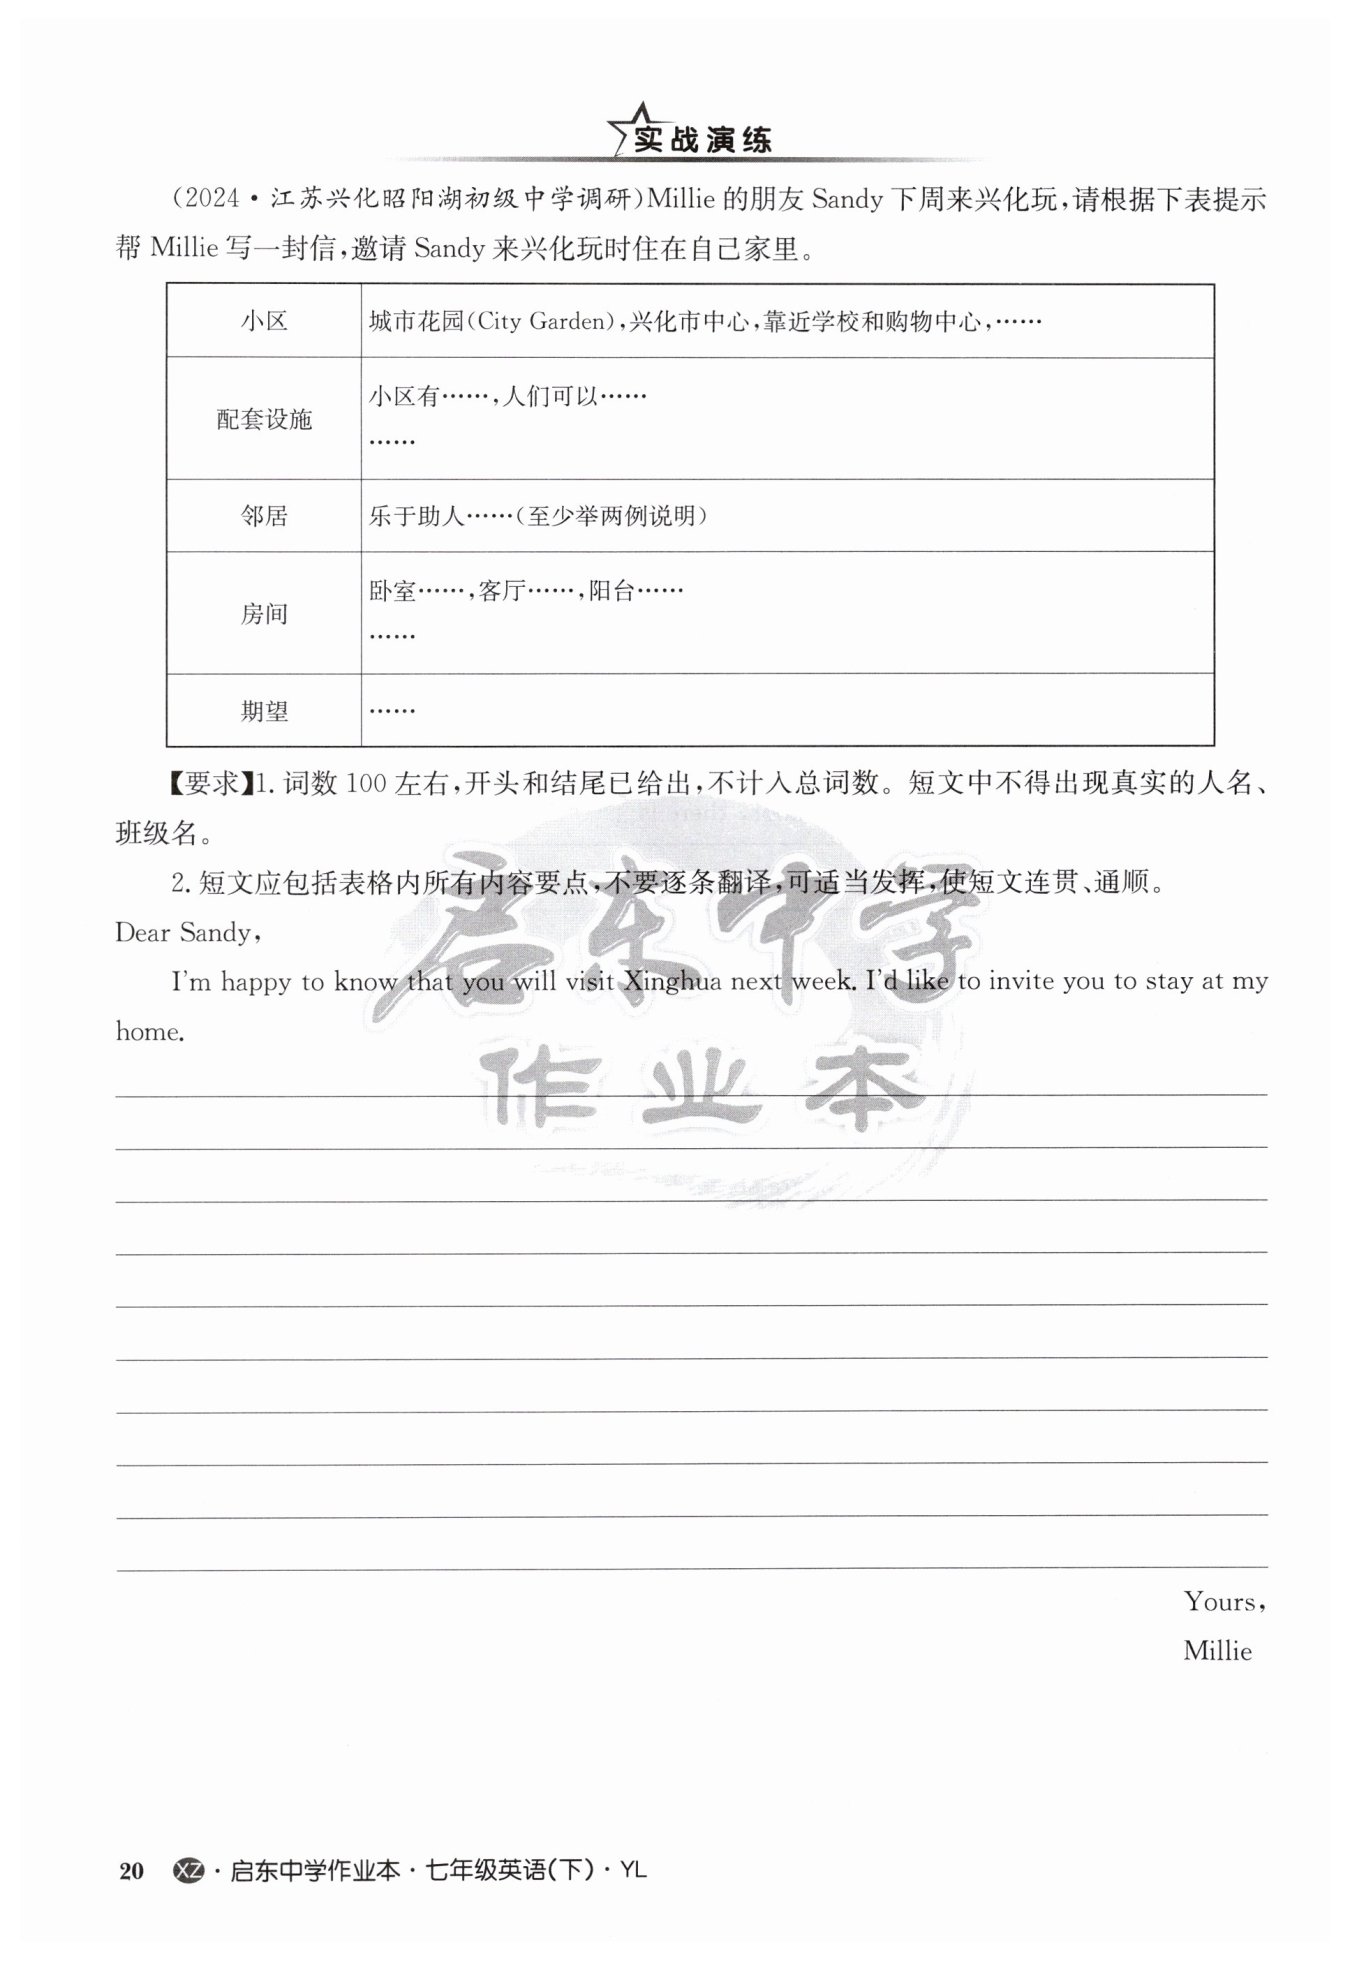 实战演练
(2024·江苏兴化昭阳湖初级中学调研)Millie 的朋友 Sandy 下周来兴化玩,请根据下表提示
帮 Millie 写一封信,邀请 Sandy 来兴化玩时住在自己家里。
小区 城市花园(City Garden),兴化市中心,靠近学校和购物中心,……
配套设施 小区有……,人们可以……
……
邻居 乐于助人……(至少举两例说明)
房间 卧室……,客厅……,阳台……
……
期望 ……
【要求】1. 词数 100 左右,开头和结尾已给出,不计入总词数。短文中不得出现真实的人名、
班级名。
2. 短文应包括表格内所有内容要点,不要逐条翻译,可适当发挥,使短文连贯、通顺。
Dear Sandy,
I'm happy to know that you will visit Xinghua next week. I'd like to invite you to stay at my
home.
启东中学
作业本
Yours,
Millie
20 XZ·启东中学作业本·七年级英语(下)·YL